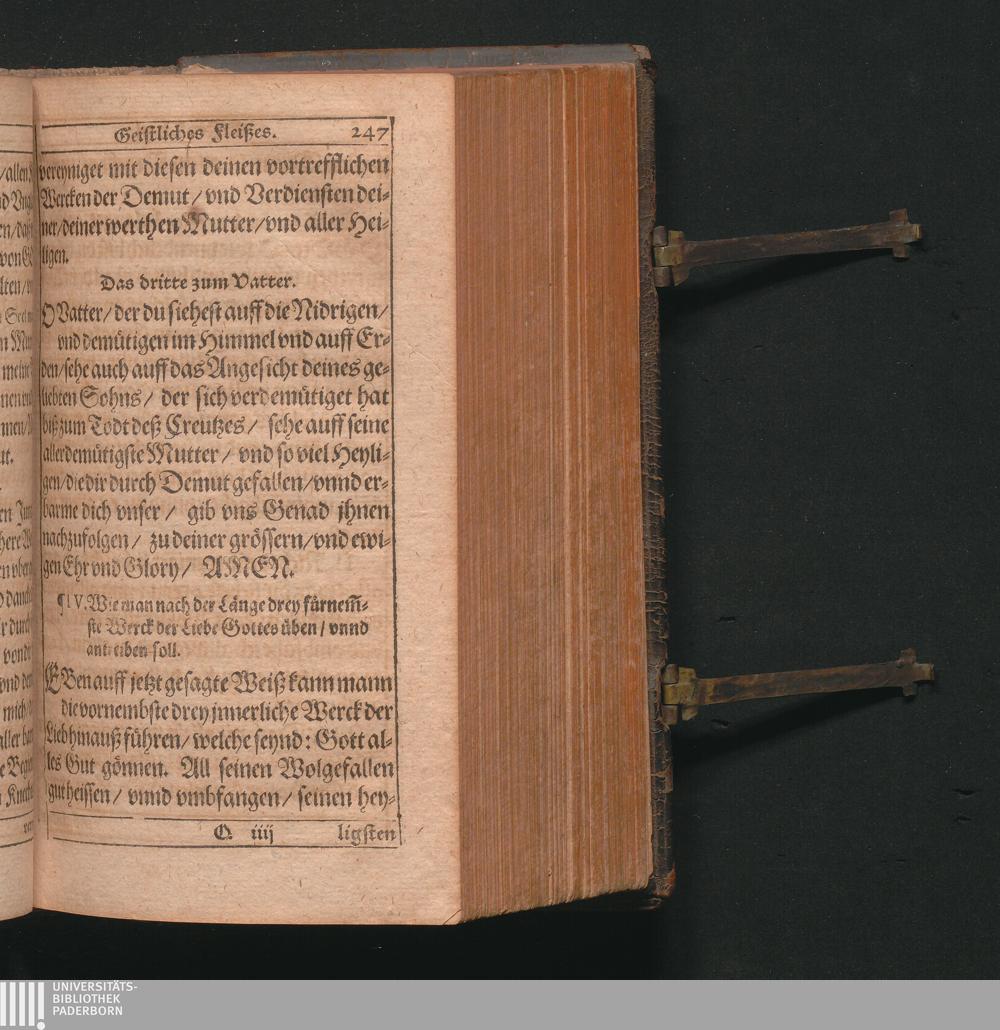 Geistliches Fleißes. 247
vereyniget mit diesen deinen vortrefflichen
Wercken der Demut / vnd Verdiensten dei-
ner / deiner werthen Mutter / vnd aller Hei-
ligen.
Das dritte zum Vatter.
O Vatter / der du siehest auff die Nidrigen /
vnd demütigen im Himmel vnd auff Er-
den / sehe auch auff das Angesicht deines ge-
liebten Sohns / der sich verdemütiget hat
biß zum Todt deß Creutzes / sehe auff seine
allerdemütigste Mutter / vnd so viel Heyli-
gen / die dir durch Demut gefallen / vnnd er-
barme dich vnser / gib vns Genad jhnen
nachzufolgen / zu deiner grössern / vnd ewi-
gen Ehr vnd Glory / AMEN.
¶IV. Wie man nach der Länge drey fürnem̃-
ste Werck der Liebe Gottes üben / vnnd
antreiben soll.
EBen auff jetzt gesagte Weiß kann mann
die vornembste drey jnnerliche Werck der
Lieb hinauß führen / welche seynd: Gott al-
les Gut gönnen. All seinen Wolgefallen
gut heissen / vnnd vmbfangen / seinen hey-
Q iiij ligsten
UNIVERSITÄTS-
BIBLIOTHEK
PADERBORN